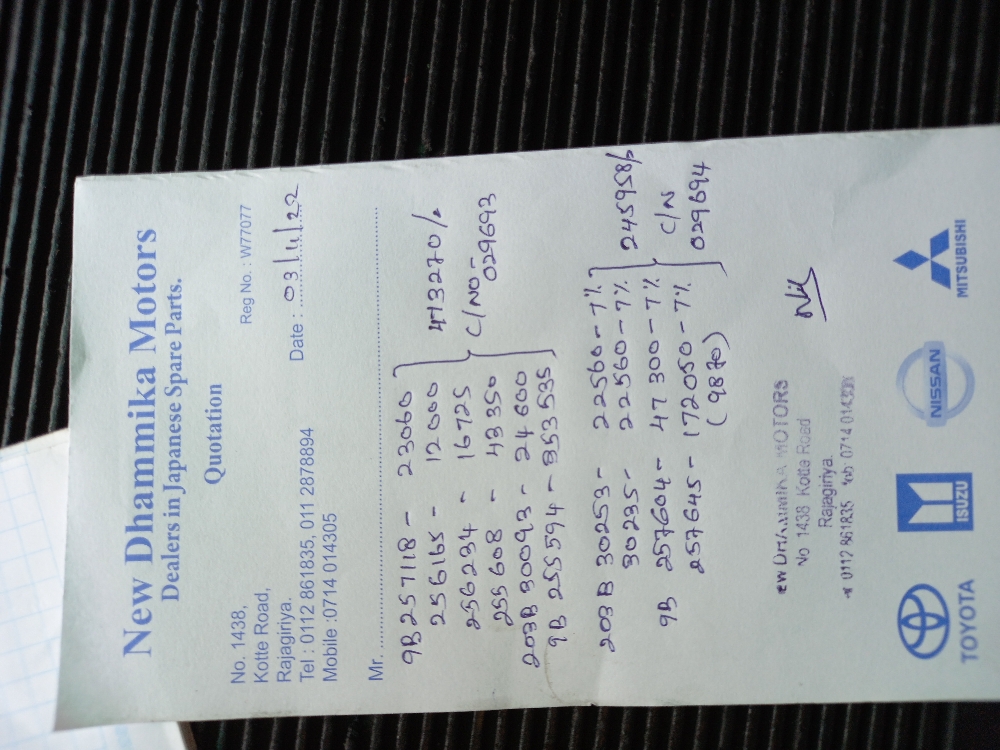 New Dhammika Motors
Dealers in Japanese Spare Parts.
Quotation
No. 1438,
Kotte Road,
Rajagiriya.
Tel : 0112 861835, 011 2878894
Mobile :0714 014305
Reg No. : W77077
Date : 03/4/22
Mr.
9B 257118 - 23060
256165 - 12000
256234 - 16725
255608 - 43350
203B 30093 - 24600
9B 255594 - 353535
473270/.
C/NO -
029693
203B 30253 - 22560 - 7%
30235 - 22560 - 7%
9B 257604 - 47300 - 7%
257645 - 172050 - 7%
(9870)
245958/.
C/N
029694
MOTORS
No 1438 Kotte Road
Rajagiriya.
0112 861835
TOYOTA
ISUZU
NISSAN
MITSUBISHI